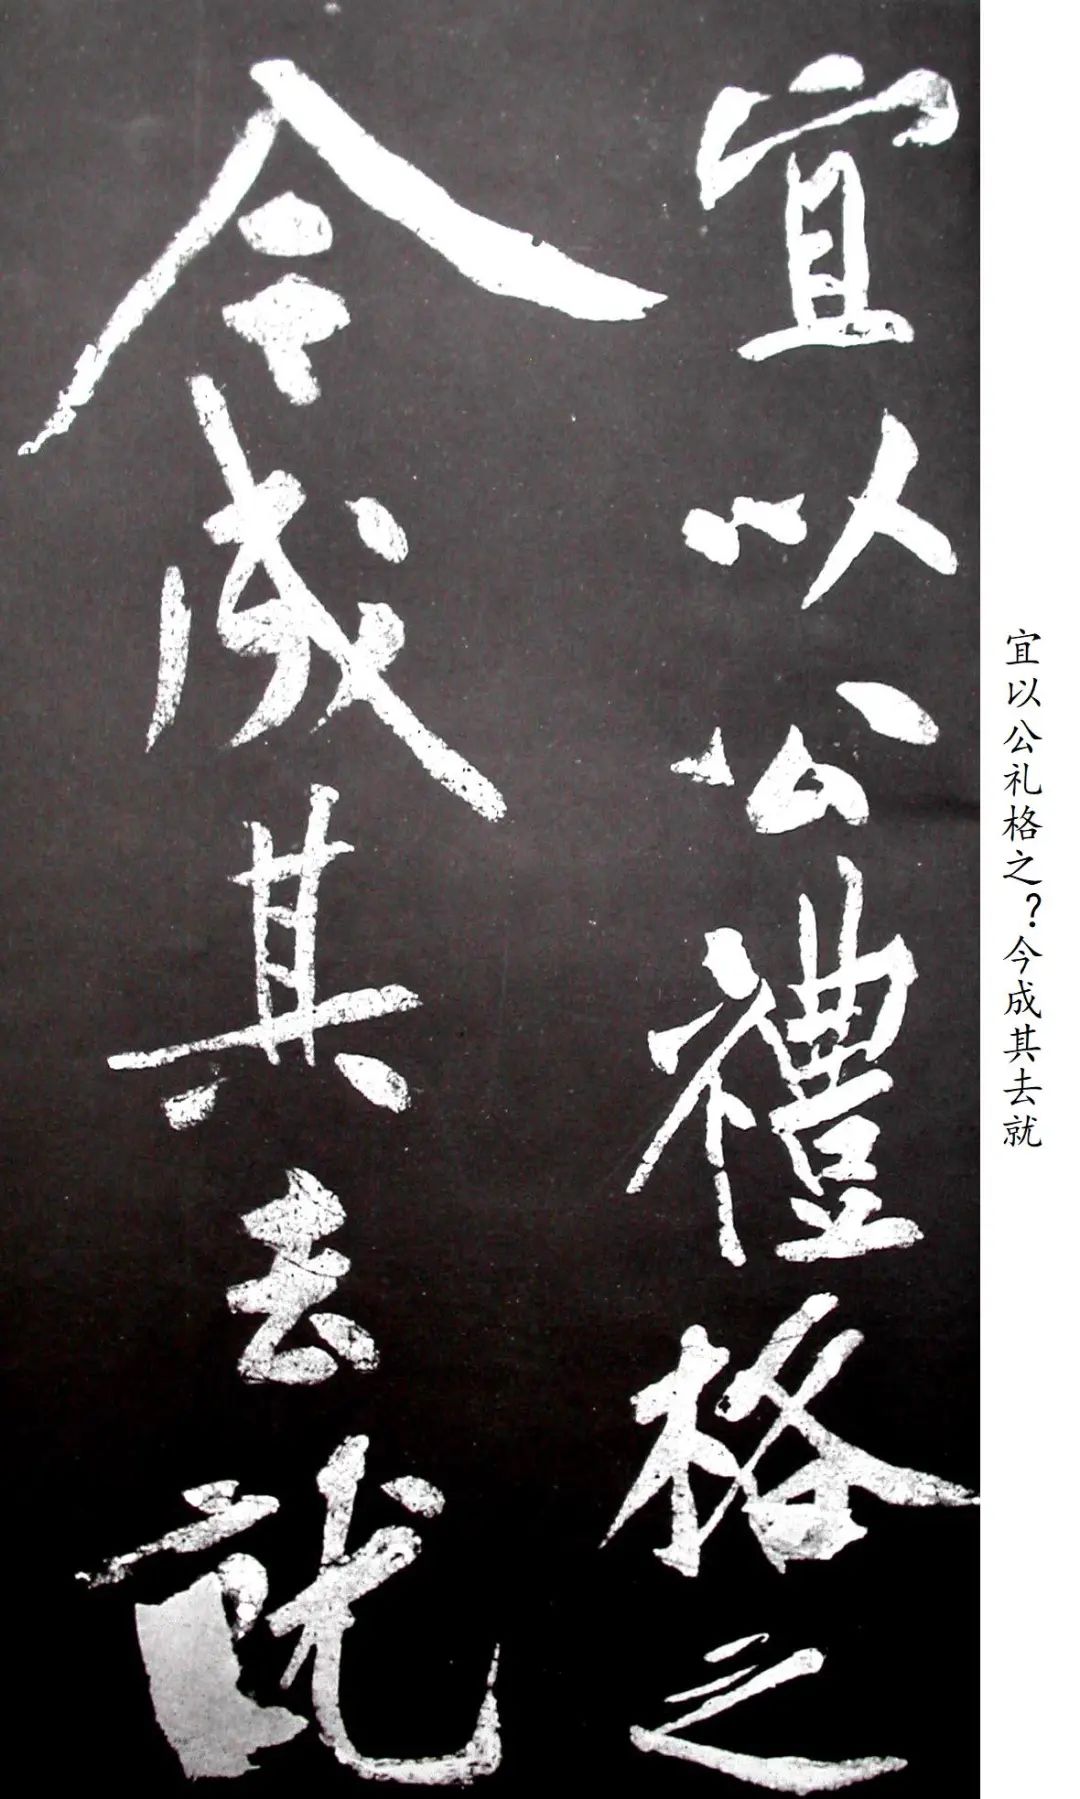 宜以公禮格之
今成其去就
宜以公礼格之？今成其去就